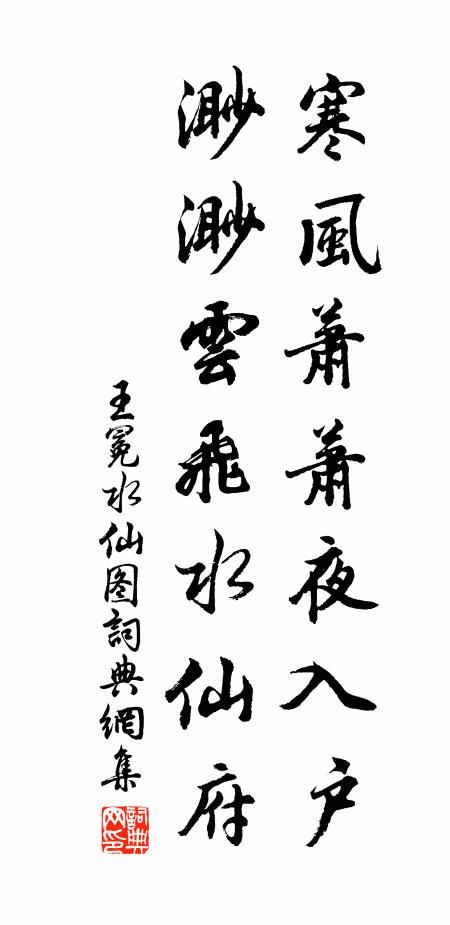 寒風蕭蕭夜入户
渺渺雲飛水仙府
王冕水仙图詞典網集
詞典网印